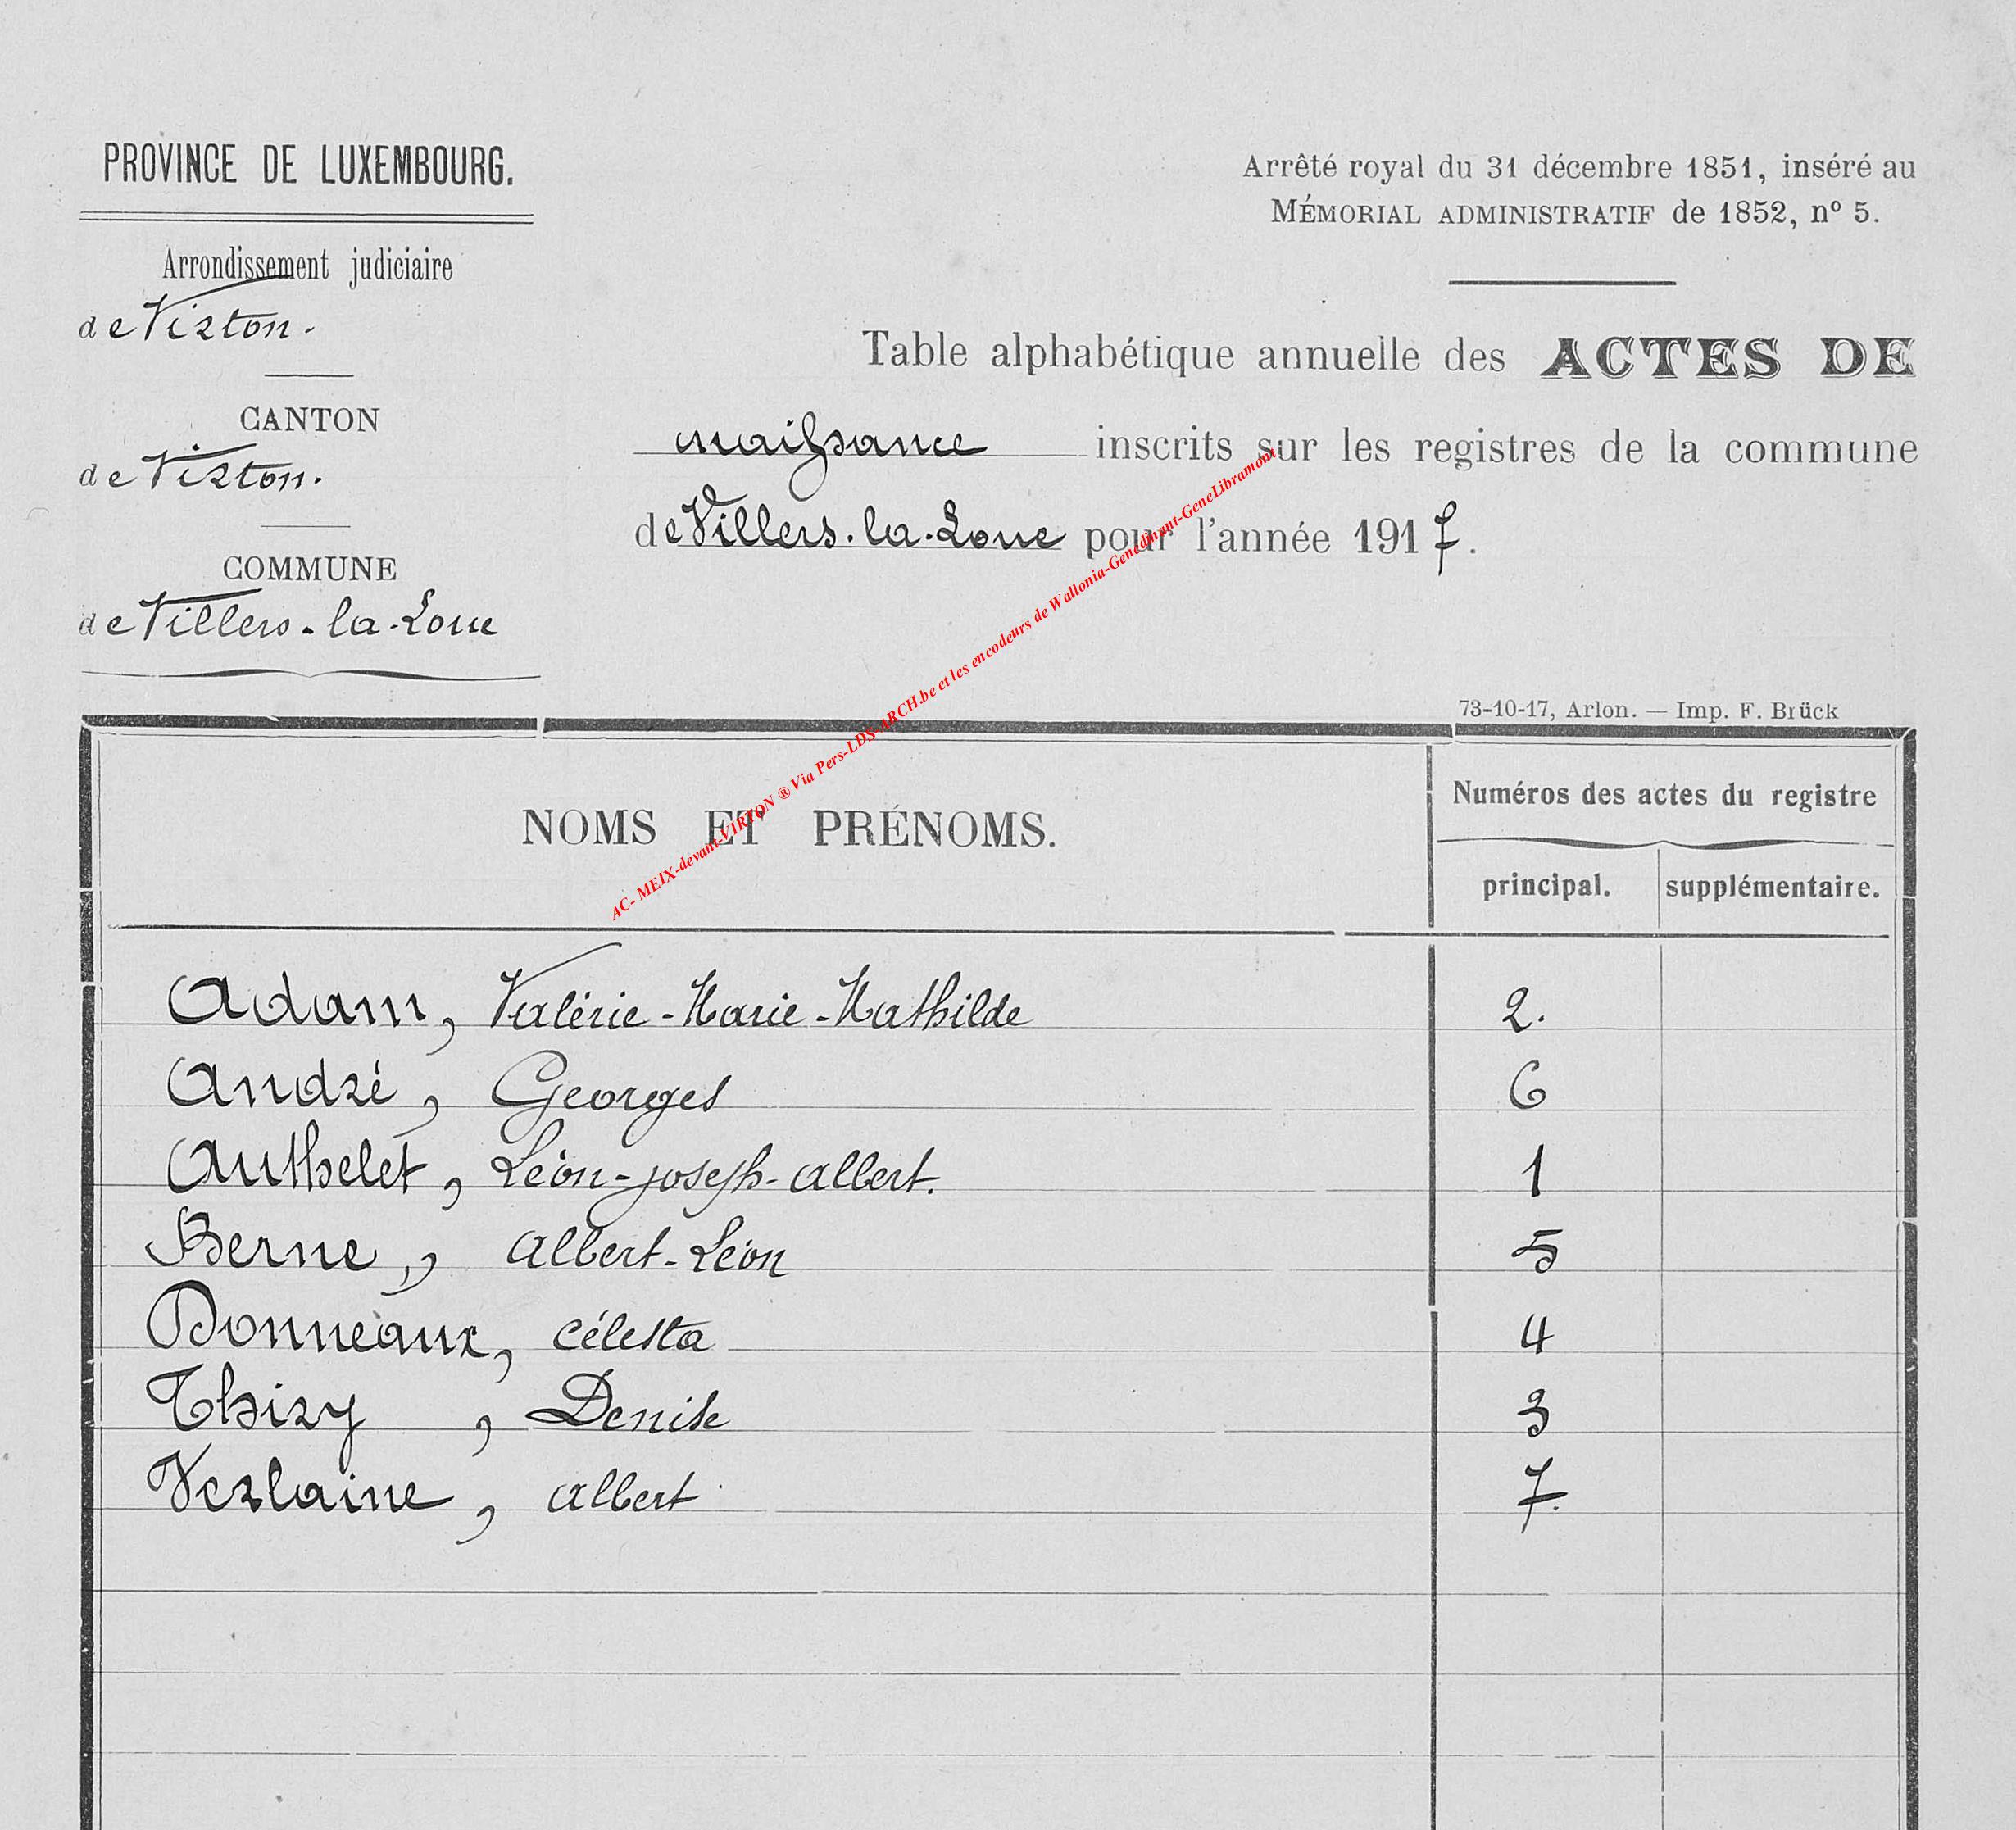 PROVINCE DE LUXEMBOURG.
Arrêté royal du 31 décembre 1851, inséré au
MÉMORIAL ADMINISTRATIF de 1852, nº 5.
Arrondissement judiciaire
de Virton.
Table alphabétique annuelle des ACTES DE
CANTON
naissance inscrits sur les registres de la commune
de Virton.
de Villers-la-Loue pour l'année 1917.
COMMUNE
de Villers-la-Loue
73-10-17, Arlon. — Imp. F. Brück
AC- MEIX-devant-VIRTON ® Via Pers-LDS-ARCH.be et les encodeurs de Wallonia-Genedinant-GeneLibramont
NOMS ET PRÉNOMS.
Numéros des actes du registre
principal. supplémentaire.
Adam, Valérie-Marie-Mathilde 2.
André, Georges 6
Authelet, Léon-joseph-albert. 1
Berne, albert-Léon 5
Donneaux, célesta 4
Thiry, Denise 3
Verlaine, albert 7.